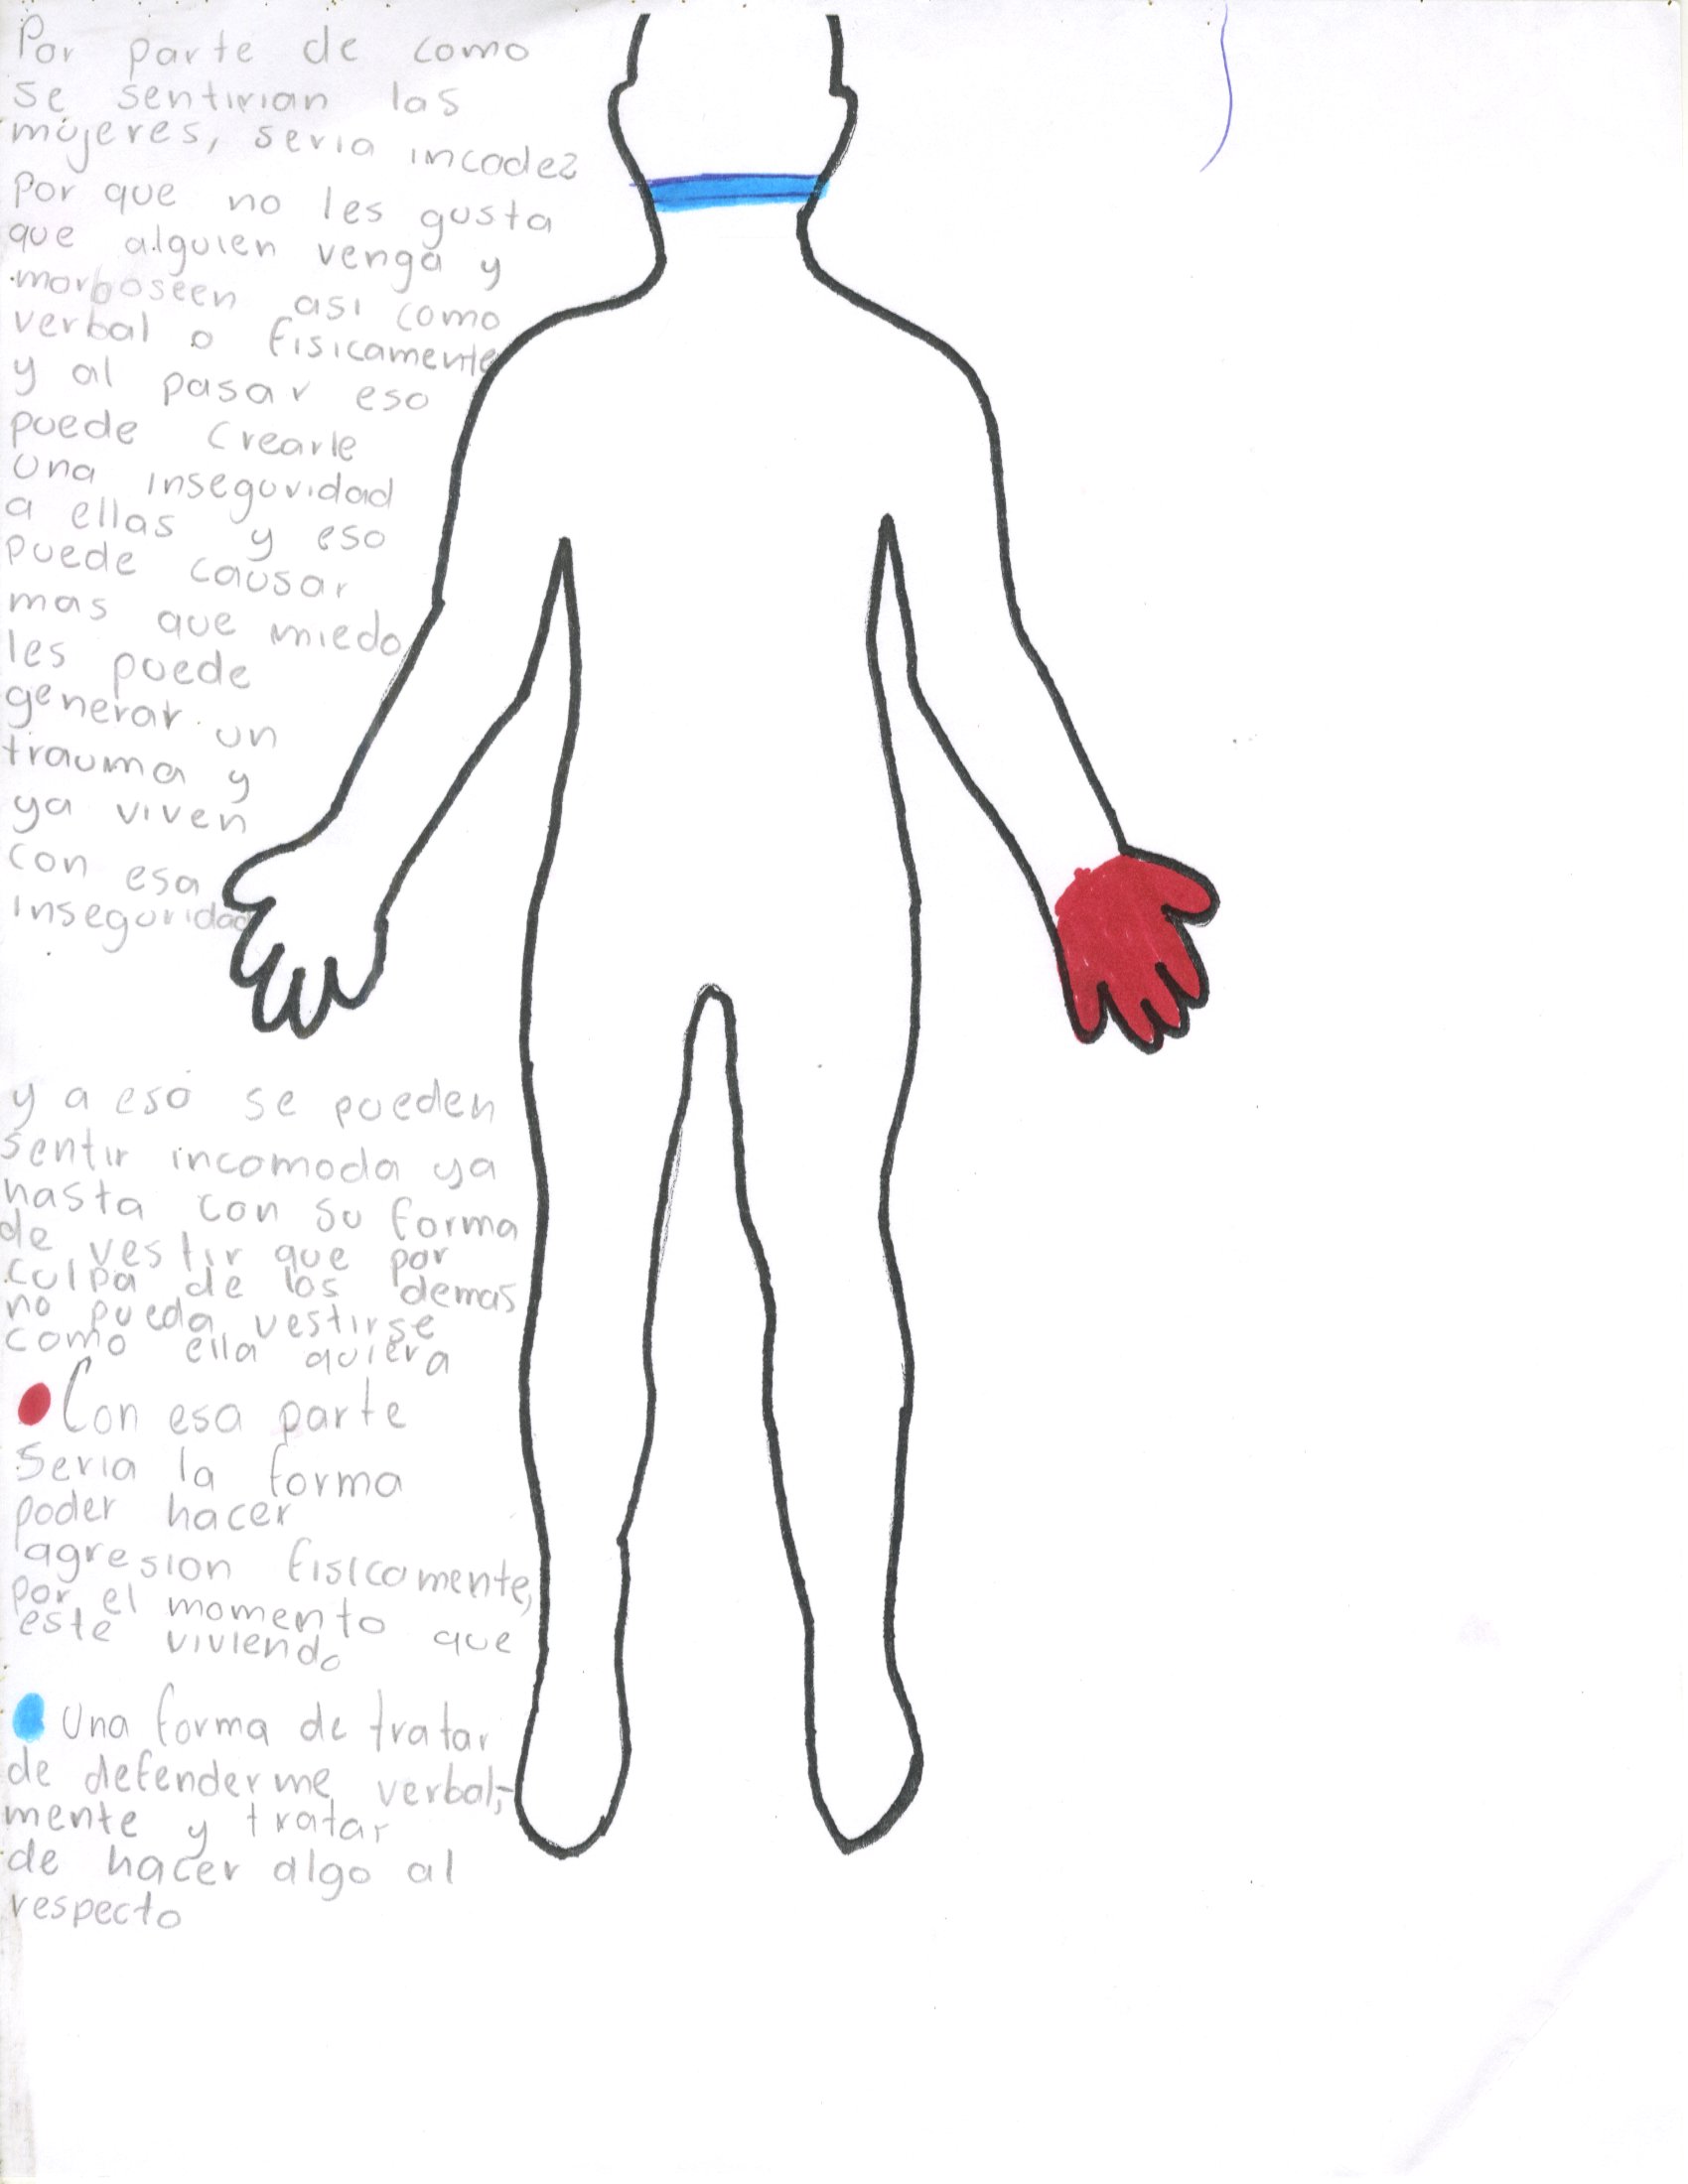 Por parte de como
se sentirian las
mujeres, seria incodez
por que no les gusta
que alguien venga y
morboseen asi como
verbal o fisicamente
y al pasar eso
puede crearle
una inseguridad
a ellas y eso
puede causar
mas que miedo
les puede
generar un
trauma y
ya viven
con esa
inseguridad
y a eso se pueden
sentir incomoda ya
hasta con su forma
de vestir que por
culpa de los demas
no pueda vestirse
como ella quiera
Con esa parte
seria la forma
poder hacer
agresion fisicamente,
por el momento que
este viviendo
Una forma de tratar
de defenderme verbal,-
mente y tratar
de hacer algo al
respecto